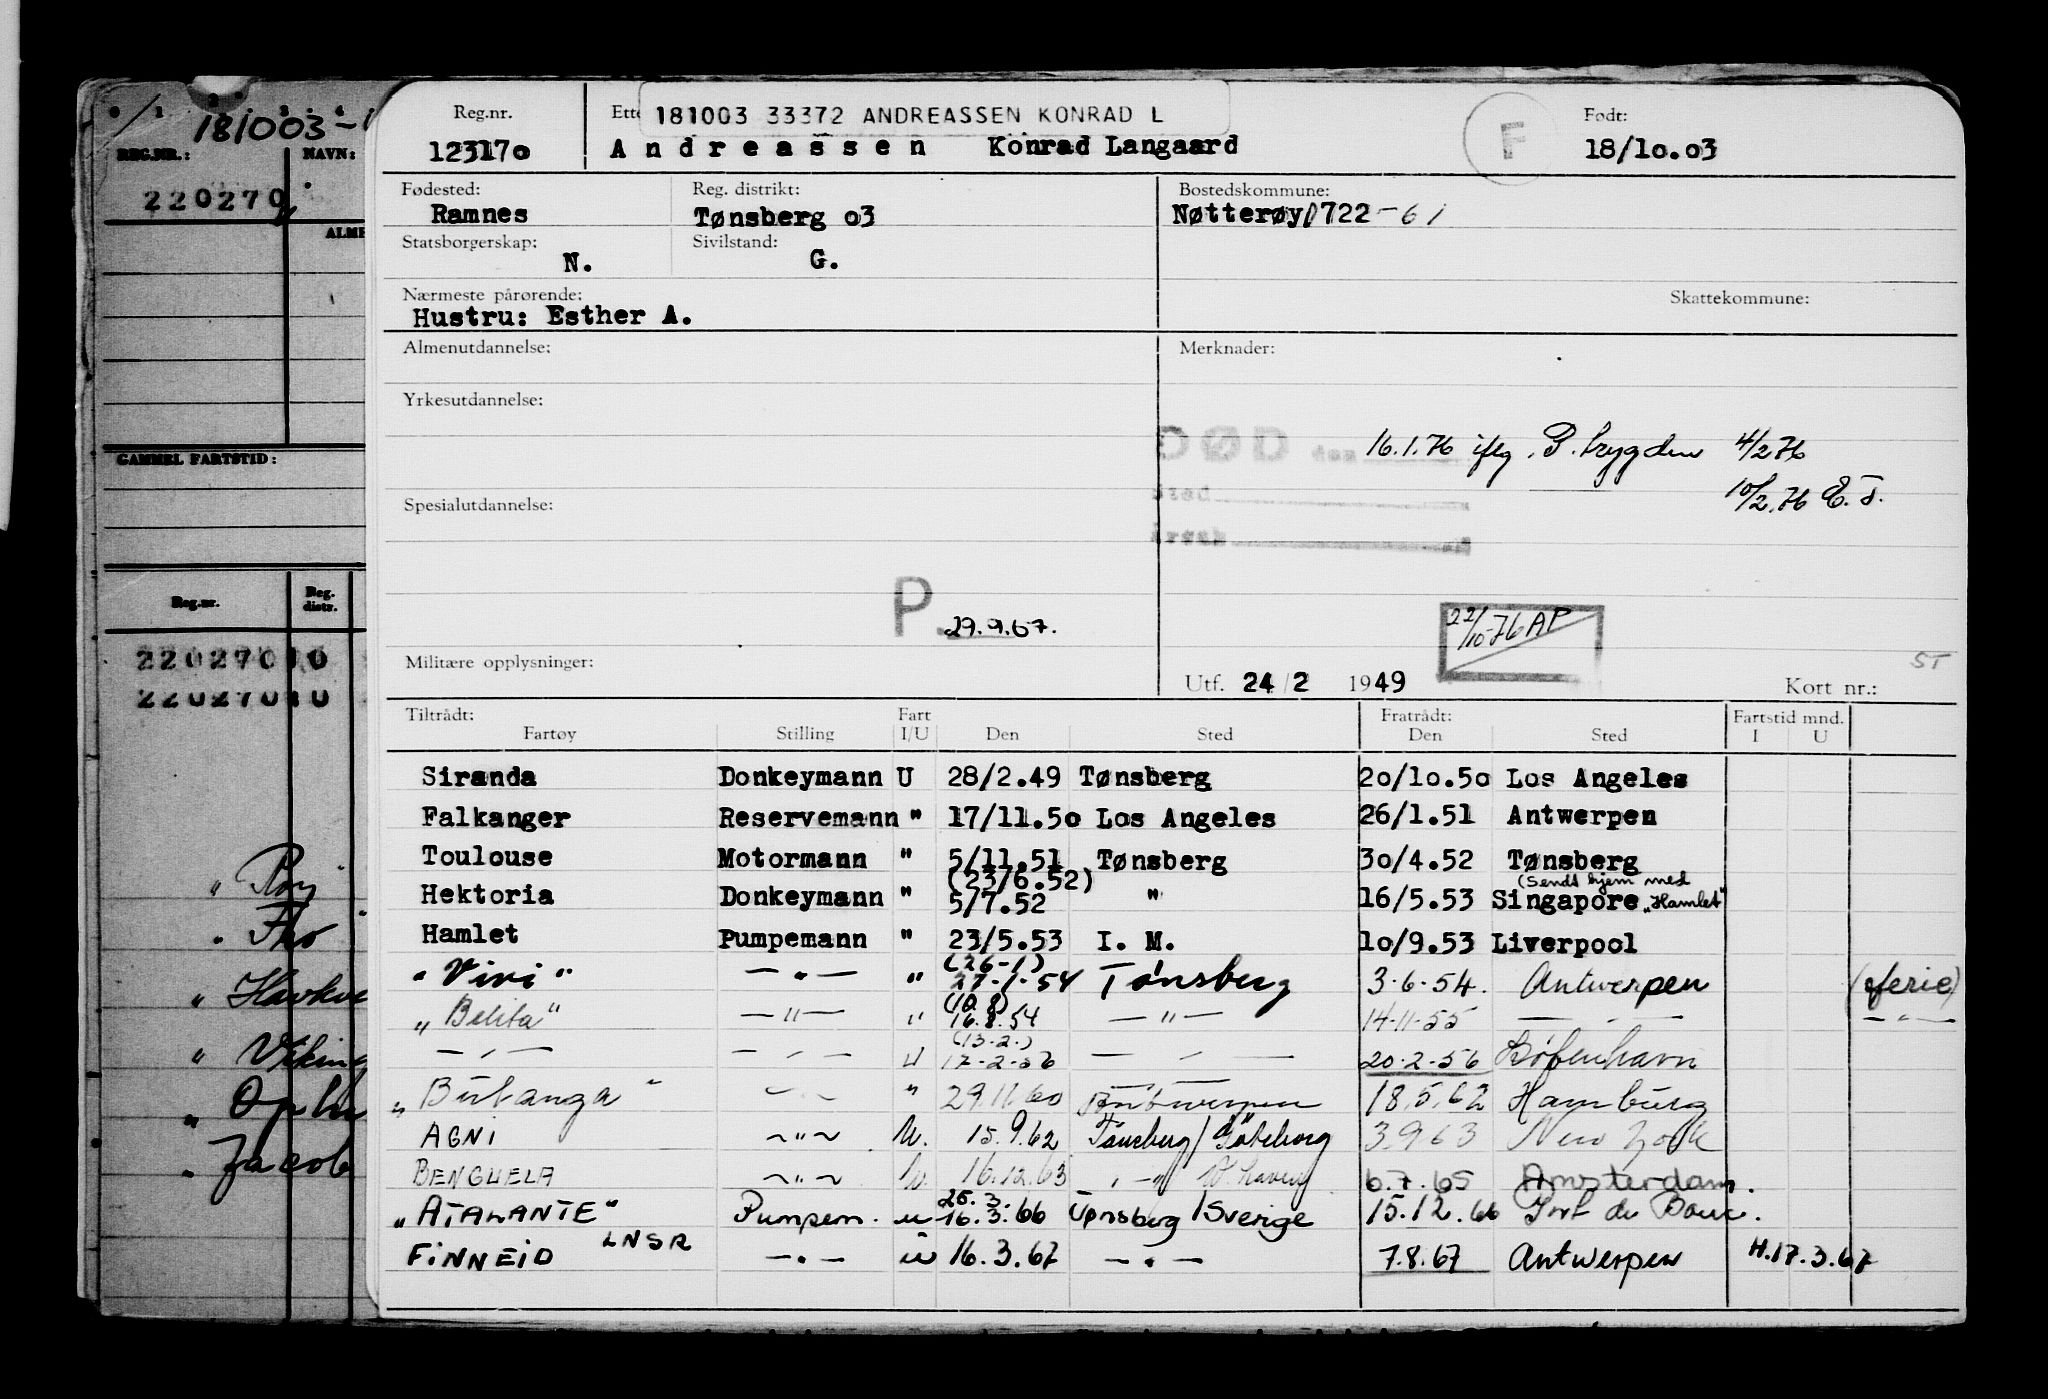 181003-1
REG.NR.: NAVN:
220270
ALME
GAMMEL FARTSTID:
Reg.nr. Reg. distr.
220270 0
220270 0
"
"
"
" Viking
"
" Jacob
Reg.nr. Ette 181003 33372 ANDREASSEN KONRAD L F Født:
123170 Andreassen Konrad Langaard 18/10.03
Fødested: Reg. distrikt: Bostedskommune:
Ramnes Tønsberg 03 Nøtterøy 0722 - 61
Statsborgerskap: Sivilstand:
N. G.
Nærmeste pårørende: Skattekommune:
Hustru: Esther A.
Almenutdannelse: Merknader:
Yrkesutdannelse:
DØD den 16.1.76 iflg. P. trygden 4/2 76
Sted 10/2.76 E.T.
Spesialutdannelse:
Årsak
P. 29.9.67. 22/10-76 AP
Militære opplysninger: ST
Utf. 24/2 1949 Kort nr.:
Tiltrådt: Fart Fratrådt: Fartstid mnd.
Fartøy Stilling I/U Den Sted Den Sted I U
Siranda Donkeymann U 28/2.49 Tønsberg 20/10.50 Los Angeles
Falkanger Reservemann " 17/11.50 Los Angeles 26/1.51 Antwerpen
Toulouse Motormann " 5/11.51 Tønsberg 30/4.52 Tønsberg
(23/6.52) (Sendt hjem med
Hektoria Donkeymann " 5/7.52 " 16/5.53 Singapore "Hamlet"
Hamlet Pumpemann " 23/5.53 I. M. 10/9.53 Liverpool
(26-1)
"Vivi" — " — " 27-1-54 Tønsberg 3-6-54. Antwerpen (ferie)
(10.8)
"Belita" — " — " 16.8.54 — " — 14-11-55 — " — — " —
(13-2-)
— " — — " — U 17-2-56 — " — 20-2-56 København
"Butanga" — " — " 29.11.60 Antwerpen 18.5.62 Hamburg
AGNI — " — U. 15.9.62 Tønsberg/Göteborg 3.9.63 New York
BENGUELA — " — U. 16.12.63 — " — W.haven 6.7.65 Amsterdam.
25.3.
"ATALANTE" Pumpem. u 16.3.66 Tønsberg/Sverige 15.12.66 Port de Bouc.
FINNEID LNSR — " — u 16.3.67 — " — 7.8.67 Antwerpen H.17.3.67